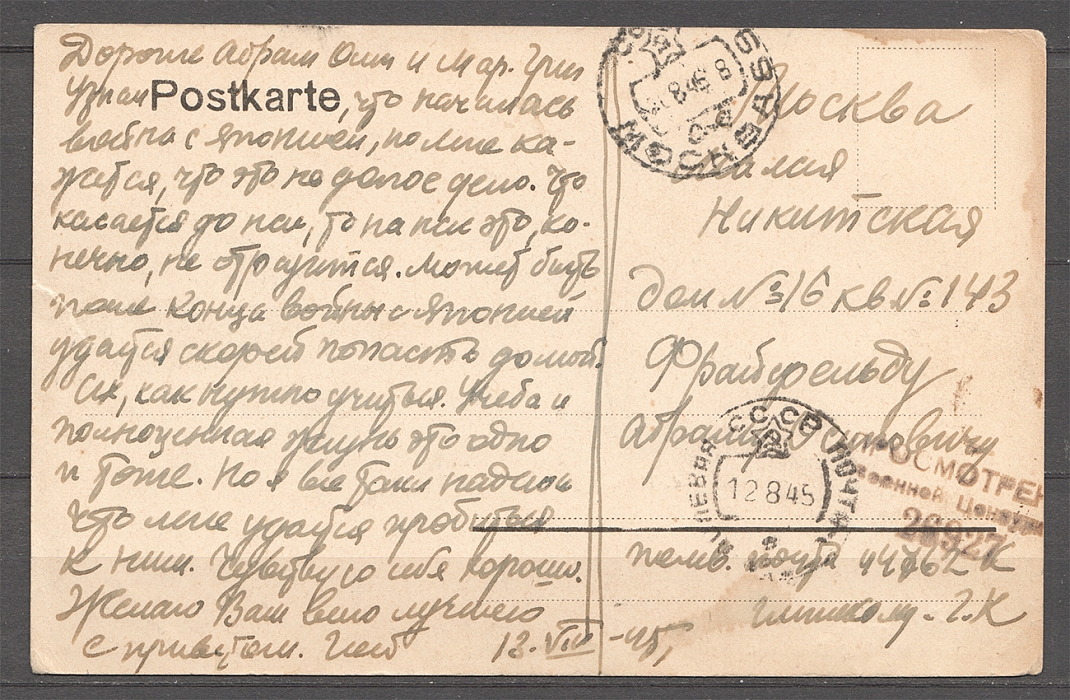 Дорогие Абрам Осип и Мар. Григ
Узнал, что началась
Postkarte
война с Японией, но мне ка-
жется, что это не долгое дело. Что
касается до нас, то на нас это, ко-
нечно, не отразится. Может быть
после конца войны с Японией
удастся скорей попасть домой.
Ох, как нужно учиться. Учеба и
полноценная жизнь это одно
и тоже. Но я все таки надеюсь
что мне удастся пробиться
к ним. Чувствую себя хорошо.
Желаю Вам всего лучшего
с приветом. Глеб 12.VIII-45
Москва
Малая
Никитская
дом № 16 кв № 143
Фрайфельду
Абраму Осиповичу
почта 44762 К
Г.К
МОСКВА
8 45 8
СССР ПОЛЕВАЯ ПОЧТА
12 8 45
ПРОСМОТРЕНО
Военной Цензурой
26927